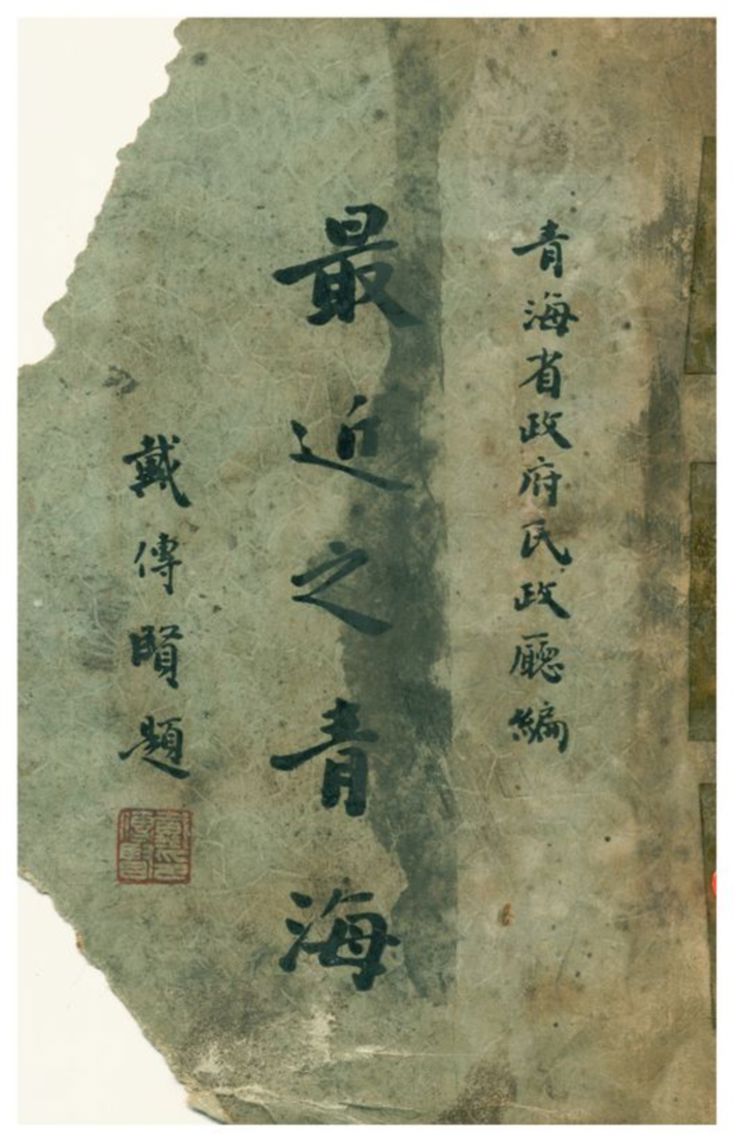 青海省政府民政廳編
最近之青海
戴傳賢題